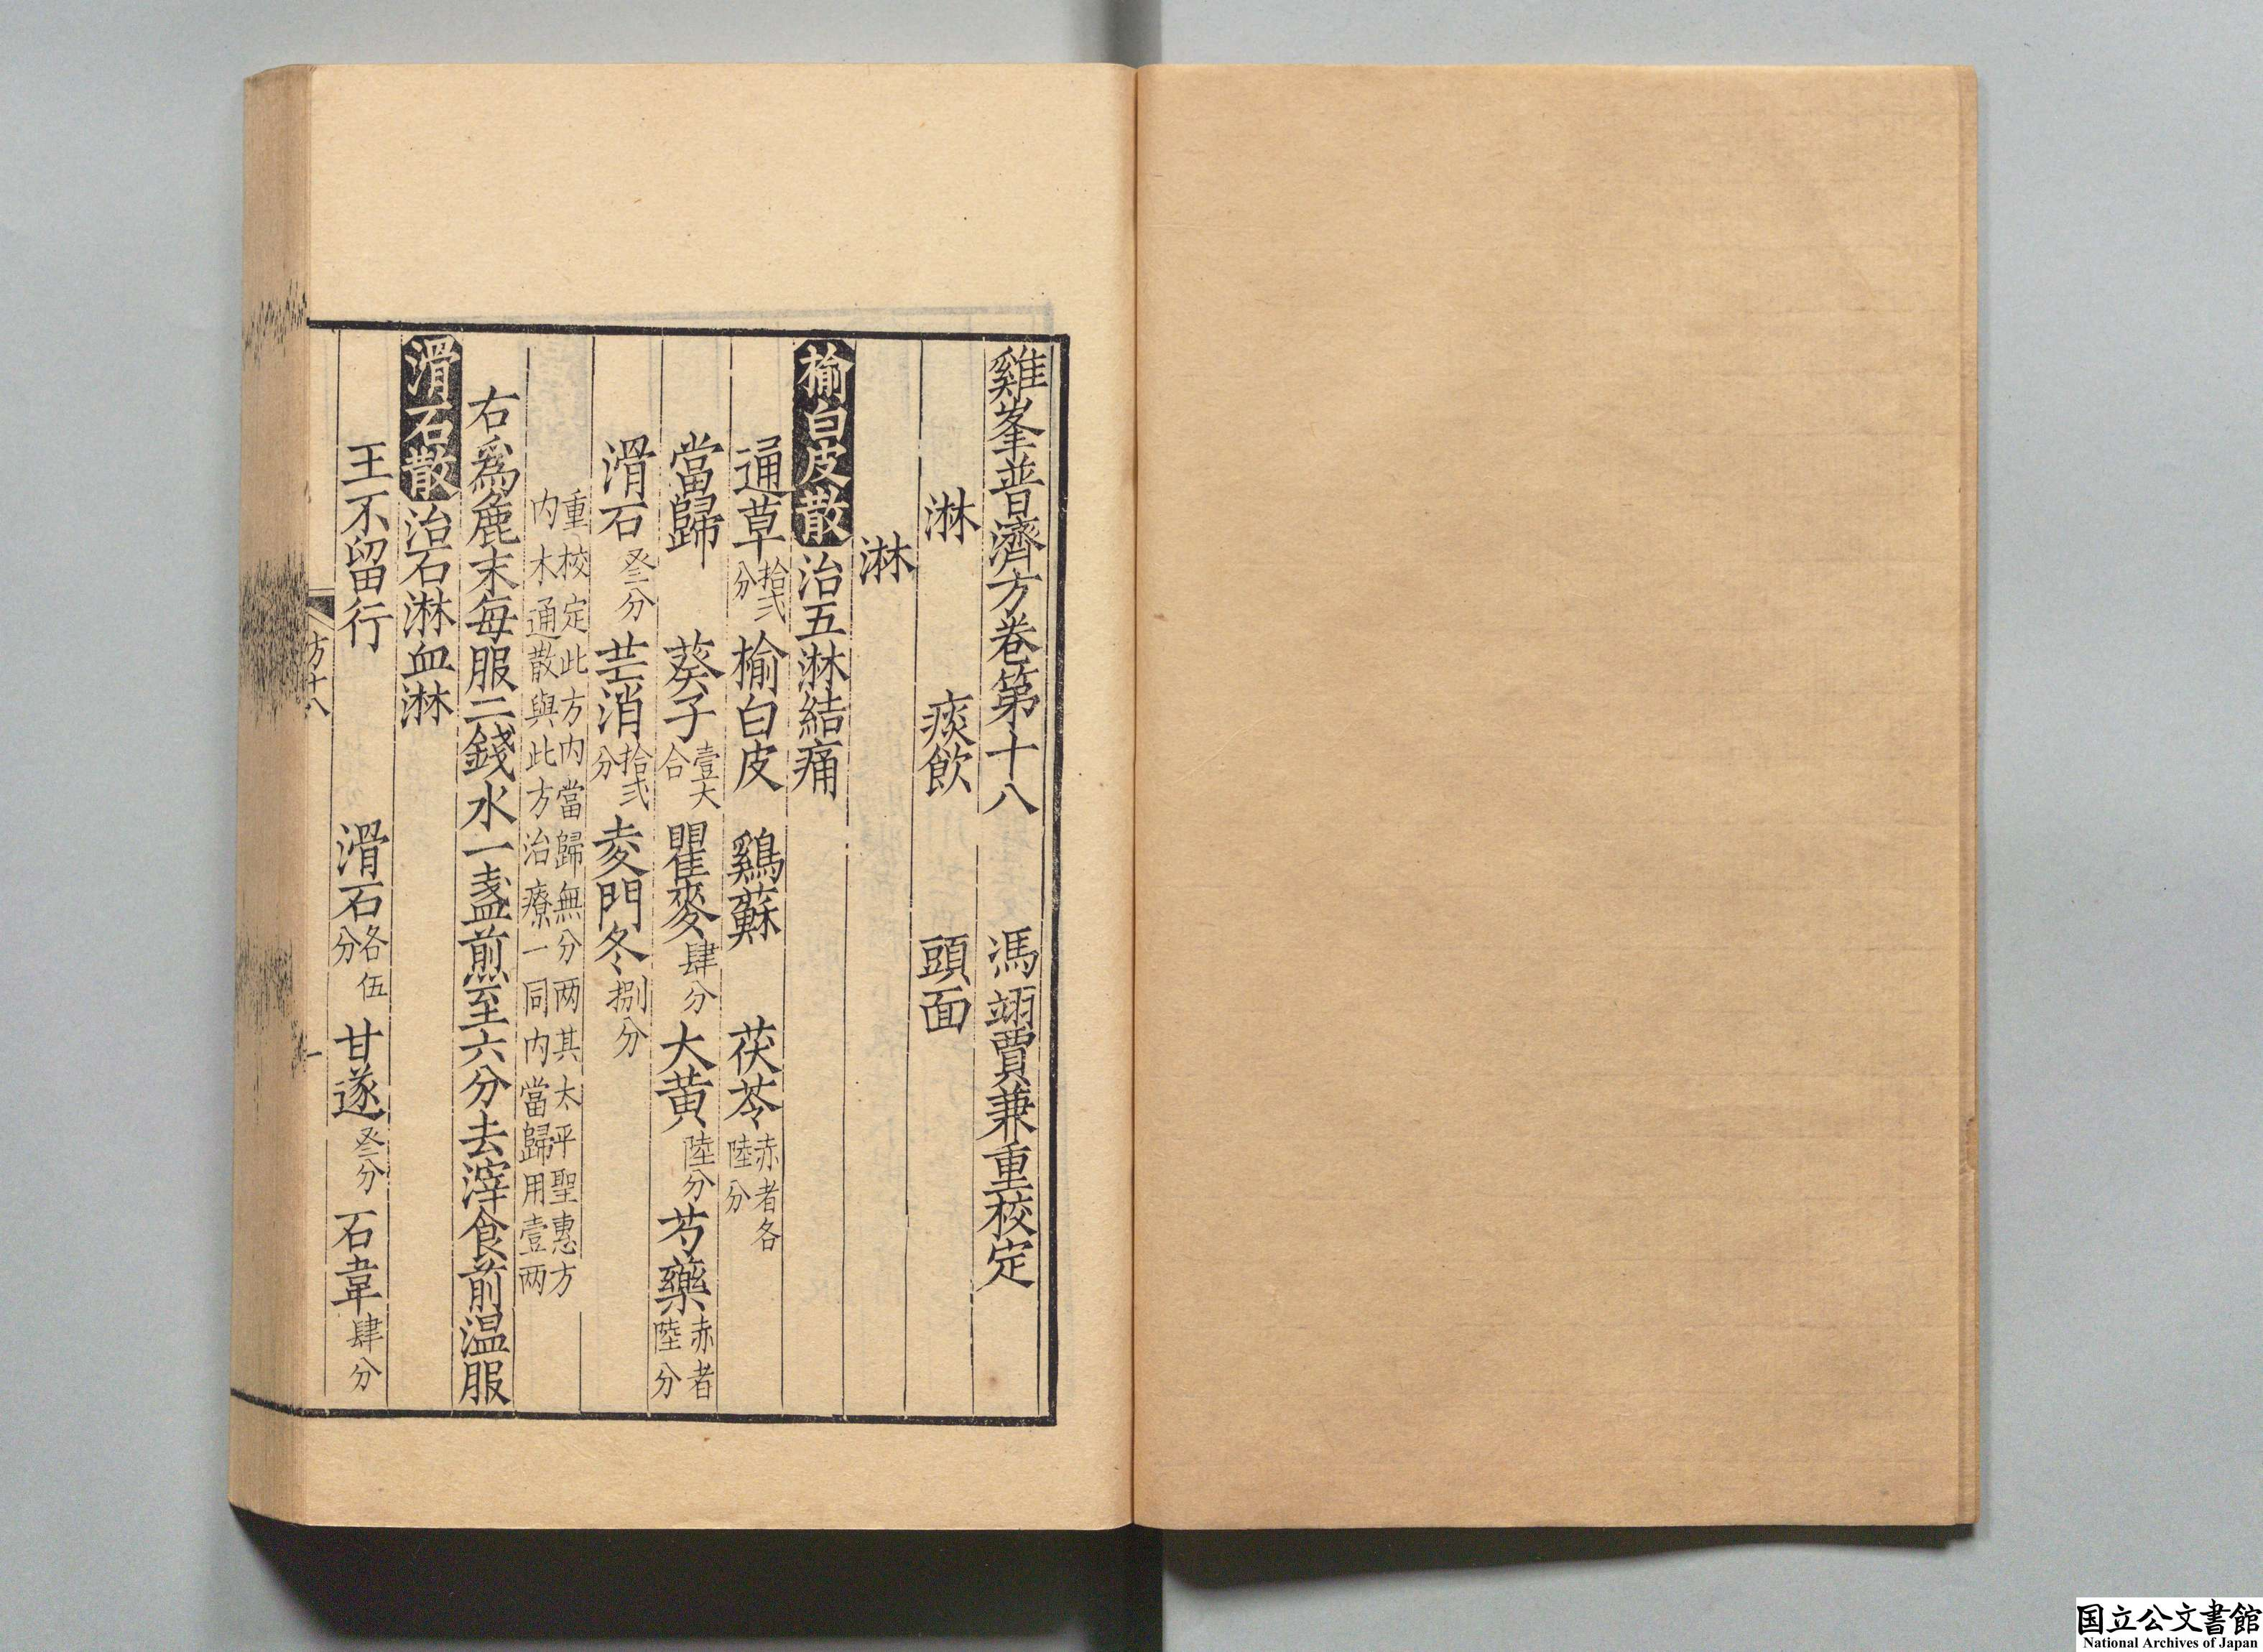 雞峯普濟方卷第十八　馮翊賈兼重校定
淋　痰飲　頭面
淋
榆白皮散治五淋結痛
通草拾弐分　榆白皮　鷄蘇　茯苓赤者各陸分
當歸　葵子壹大合　瞿麥肆分　大黄陸分　芍藥赤者陸分
滑石叄分　芒消拾弐分　麦門冬捌分
重校定此方内當歸無分两其太平聖惠方
内木通散與此方治療一同内當歸用壹两
右爲麁末每服二錢水一盞煎至六分去滓食前温服
滑石散治石淋血淋
王不留行　滑石各伍分　甘遂叄分　石韋肆分
方十八
一
国立公文書館
National Archives of Japan